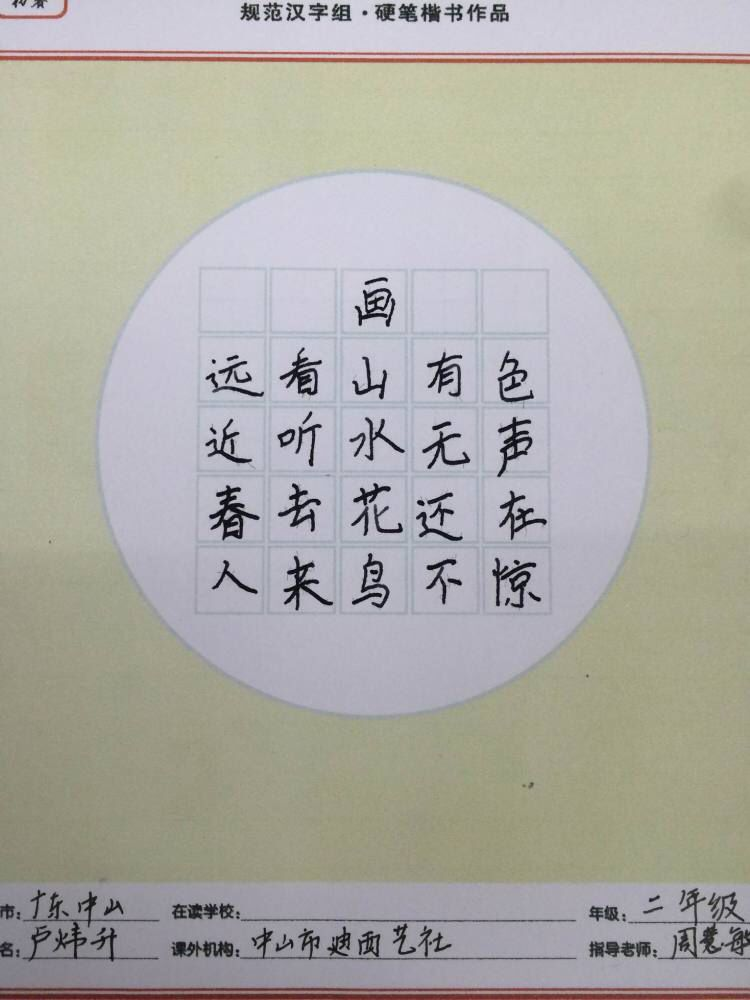 初赛
规范汉字组·硬笔楷书作品
画
远看山有色
近听水无声
春去花还在
人来鸟不惊
市：广东中山 在读学校： 年级：二年级
名：卢炜升 课外机构：中山市迪西艺社 指导老师：周慧敏